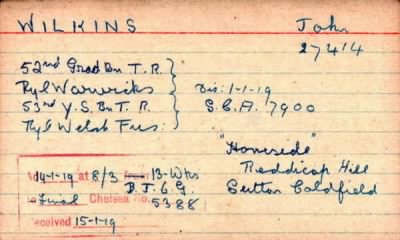 WILKINS
John
27414
52nd Grad Bn T.R.
Ryl Warwicks
Dis: 1-1-19
53rd Y.S. Bn T.R.
S.B.A. 7900
Ryl Welsh Fus:
"Homeside"
Reddicap Hill
Sutton Coldfield
14-1-19 at 8/3 from 13-Wks
B.J.6.G.
Final Chelsea No. 5388
Received 15-1-19